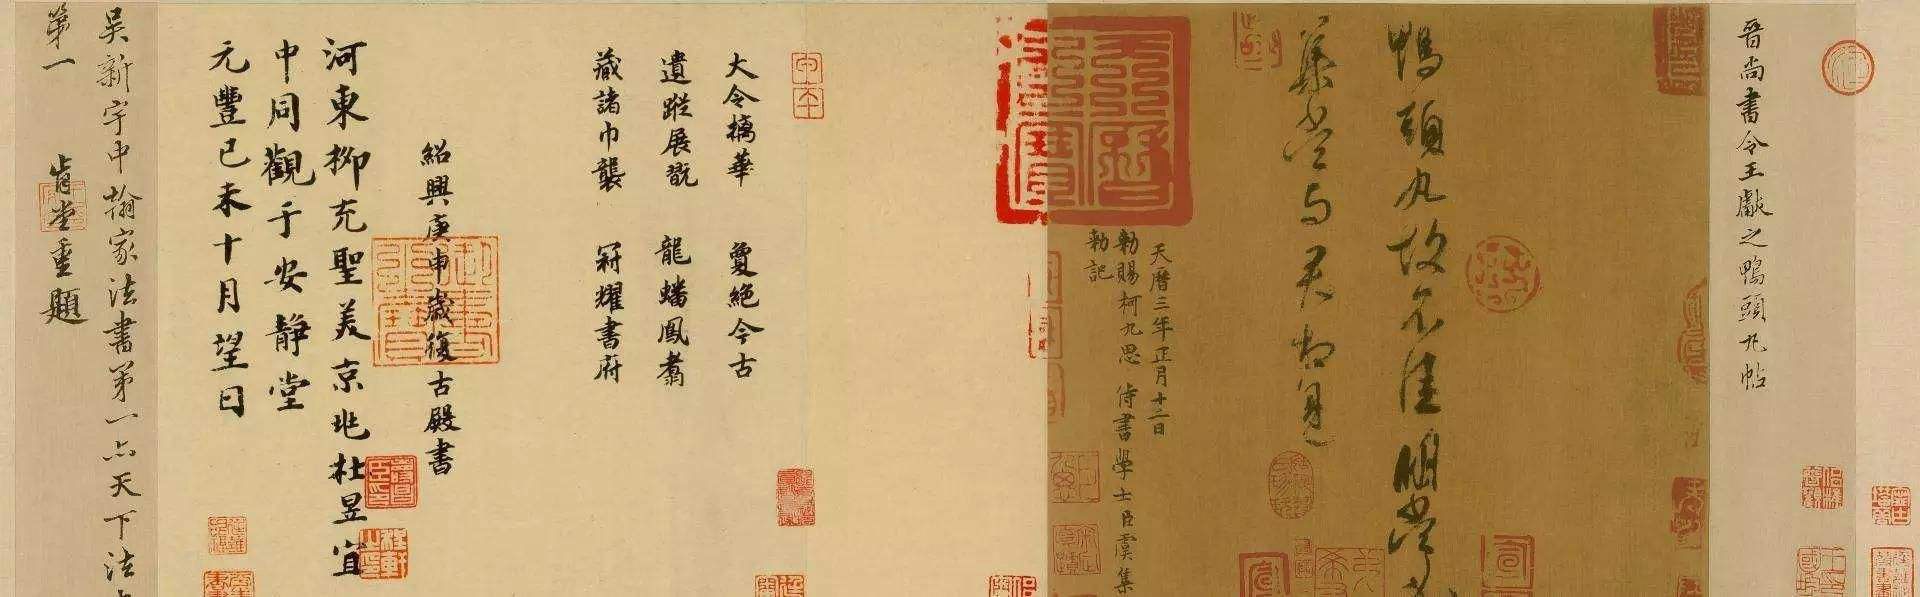 晉尚書令王獻之鴨頭丸帖
鴨頭丸故不佳明當必
集當與君相見
天曆三年正月十二日
勑賜柯九思侍書學士臣虞集
勑記
天曆之寶
大令摛華敻絕今古
遺蹤展翫龍蟠鳳翥
藏諸巾襲冠耀書府
紹興庚申歲復古殿書
河東柳充聖美京兆杜昱宜
中同觀于安靜堂
元豐己未十月望日
吳新宇中翰家法書第一亦天下法書
第一 肯堂重題